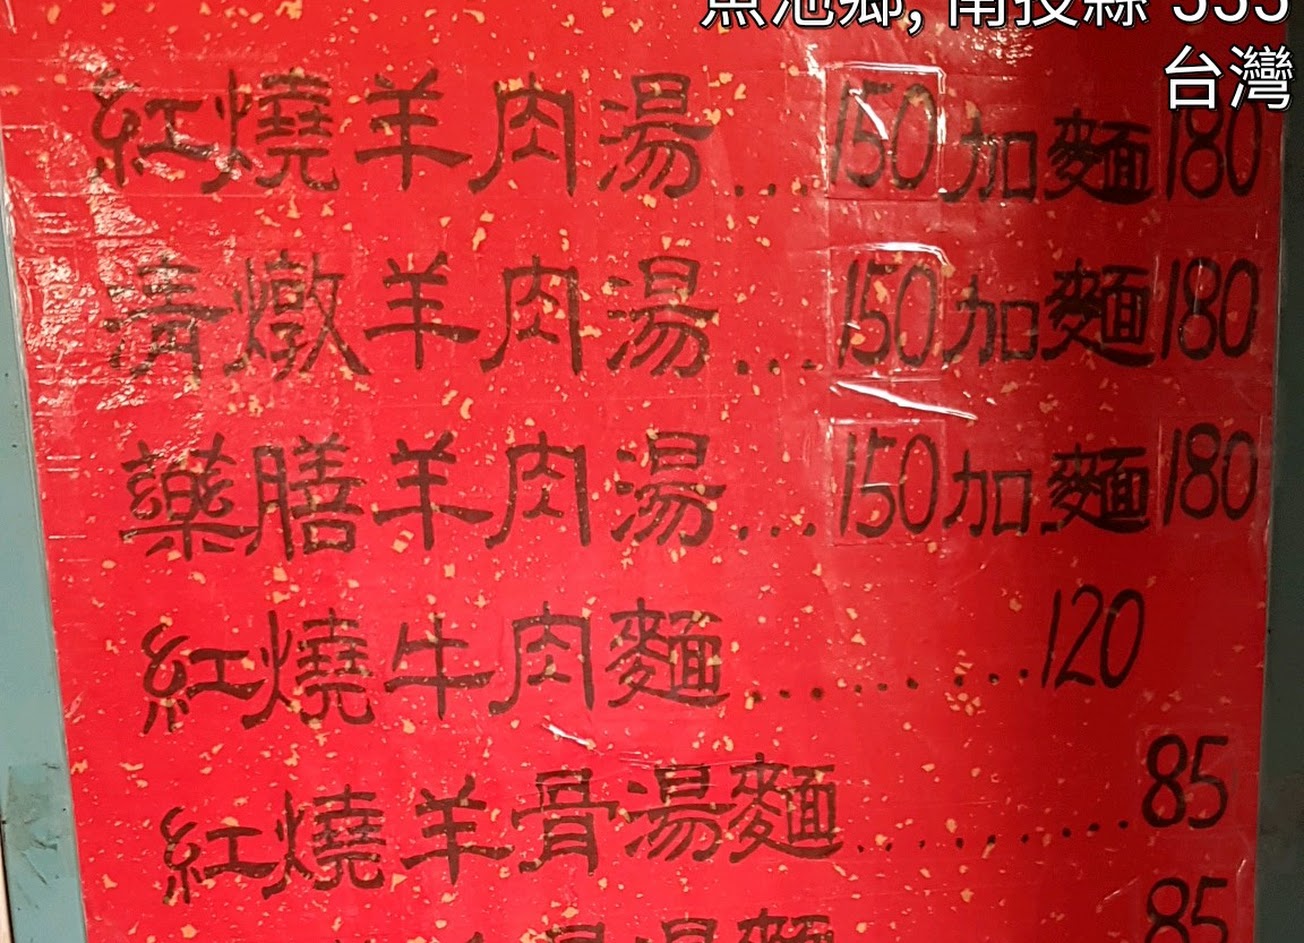 魚池鄉, 南投縣 555
台灣
紅燒羊肉湯...150加麵180
清燉羊肉湯...150加麵180
藥膳羊肉湯...150加麵180
紅燒牛肉麵.........120
紅燒羊骨湯麵.........85
骨湯麵 85